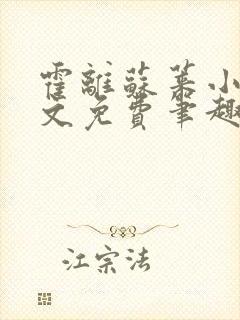 霍離蘇慕小
文免費筆趣
江宗法